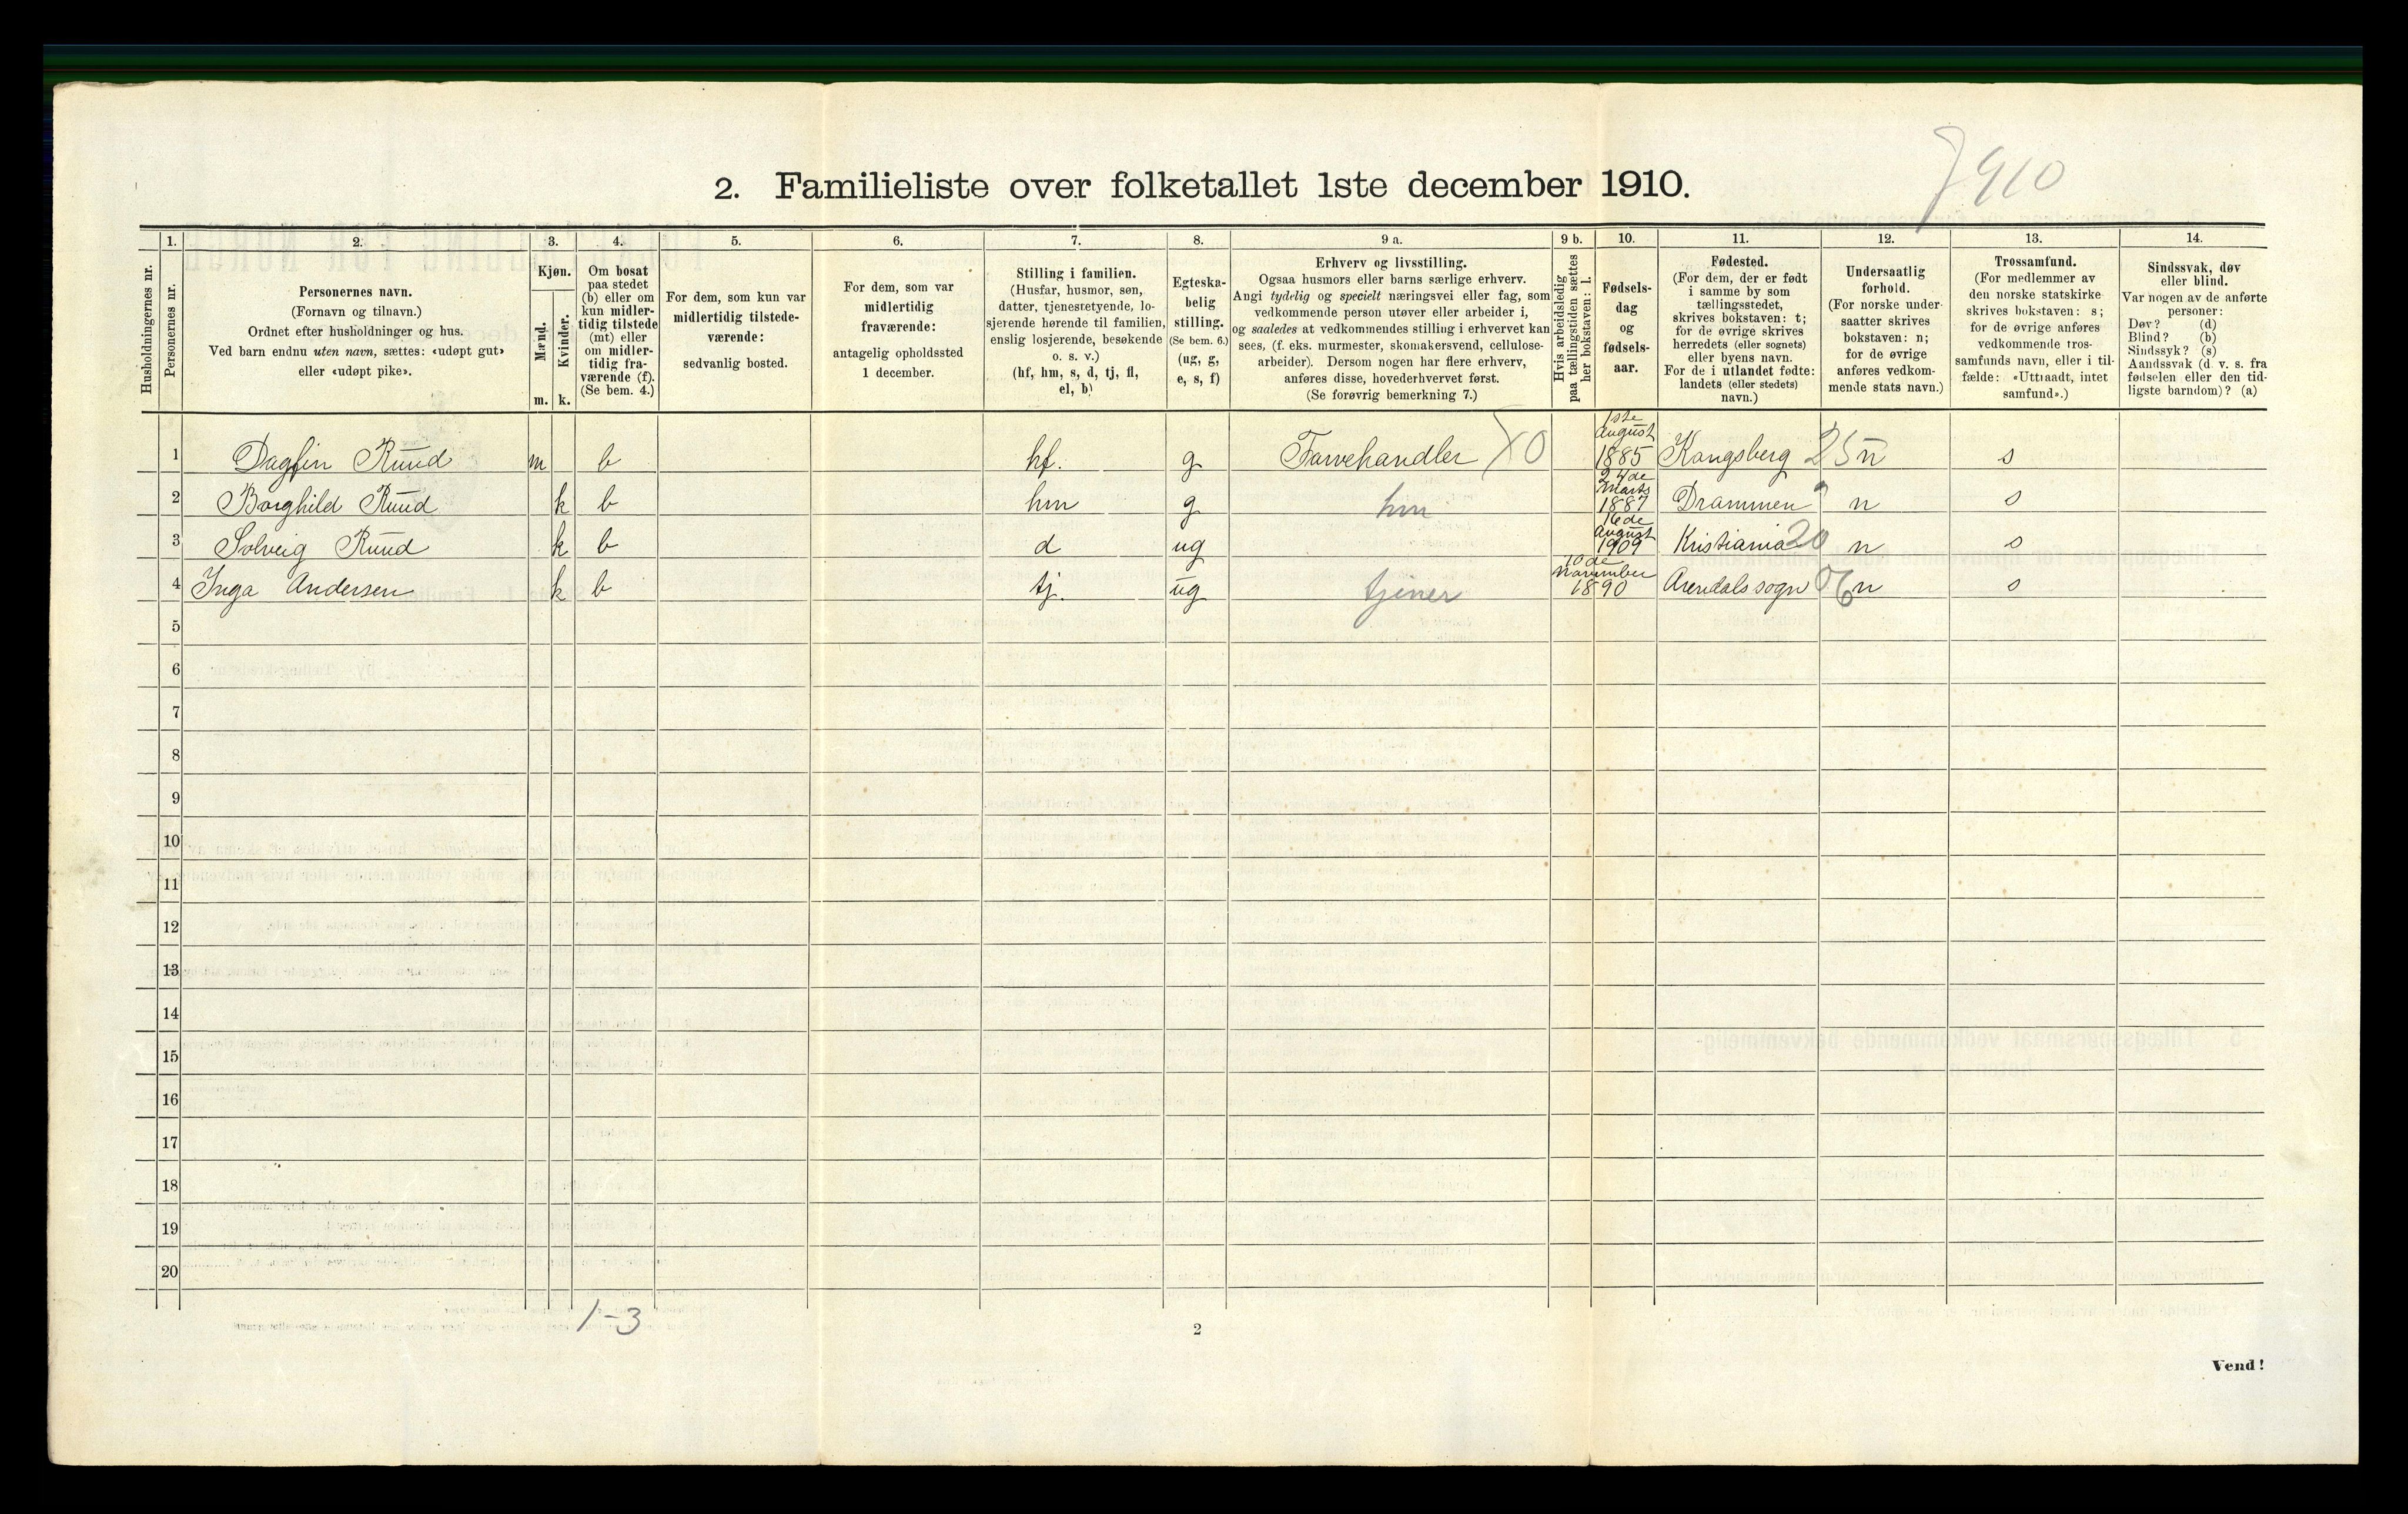 7910
2. Familieliste over folketallet 1ste december 1910.
Husholdningernes nr.
1.
Personernes nr.
2.
Personernes navn.
(Fornavn og tilnavn.)
Ordnet efter husholdninger og hus.
Ved barn endnu uten navn, sættes: «udøpt gut»
eller «udøpt pike».
3.
Kjøn.
Mænd.
m.
Kvinder.
k.
4.
Om bosat
paa stedet
(b) eller om
kun midler-
tidig tilstede
(mt) eller
om midler-
tidig fra-
værende (f).
(Se bem. 4.)
5.
For dem, som kun var
midlertidig tilstede-
værende:
sedvanlig bosted.
6.
For dem, som var
midlertidig
fraværende:
antagelig opholdssted
1 december.
7.
Stilling i familien.
(Husfar, husmor, søn,
datter, tjenestetyende, lo-
sjerende hørende til familien,
enslig losjerende, besøkende
o. s. v.)
(hf, hm, s, d, tj, fl,
el, b)
8.
Egteska-
belig
stilling.
(Se bem. 6.)
(ug, g,
e, s, f)
9 a.
Erhverv og livsstilling.
Ogsaa husmors eller barns særlige erhverv.
Angi tydelig og specielt næringsvei eller fag, som
vedkommende person utøver eller arbeider i,
og saaledes at vedkommendes stilling i erhvervet kan
sees, (f. eks. murmester, skomakersvend, cellulose-
arbeider). Dersom nogen har flere erhverv,
anføres disse, hovederhvervet først.
(Se forøvrig bemerkning 7.)
9 b.
Hvis arbeidsledig
paa tællingstiden sættes
her bokstaven: l.
10.
Fødsels-
dag
og
fødsels-
aar.
11.
Fødested.
(For dem, der er født
i samme by som
tællingsstedet,
skrives bokstaven: t;
for de øvrige skrives
herredets (eller sognets)
eller byens navn.
For de i utlandet fødte:
landets (eller stedets)
navn.)
12.
Undersaatlig
forhold.
(For norske under-
saatter skrives
bokstaven: n;
for de øvrige
anføres vedkom-
mende stats navn.)
13.
Trossamfund.
(For medlemmer av
den norske statskirke
skrives bokstaven: s;
for de øvrige anføres
vedkommende tros-
samfunds navn, eller i til-
fælde: «Uttraadt, intet
samfund».)
14.
Sindssvak, døv
eller blind.
Var nogen av de anførte
personer:
Døv? (d)
Blind? (b)
Sindssyk? (s)
Aandssvak (d. v. s. fra
fødselen eller den tid-
ligste barndom)? (a)
1 Dagfin Ruud m b hf. g Farvehandler X0 1ste August 1885 Kongsberg 25 n s
2 Borghild Ruud k b hm g hm 24de Marts 1887 Drammen n s
3 Solveig Ruud k b d ug 16de August 1909 Kristiania 20 n s
4 Inga Andersen k b tj. ug tjener 10de November 1890 Arendals sogn 06 n s
5
6
7
8
9
10
11
12
13
14
15
16
17
18
19
20
1-3
2
Vend!